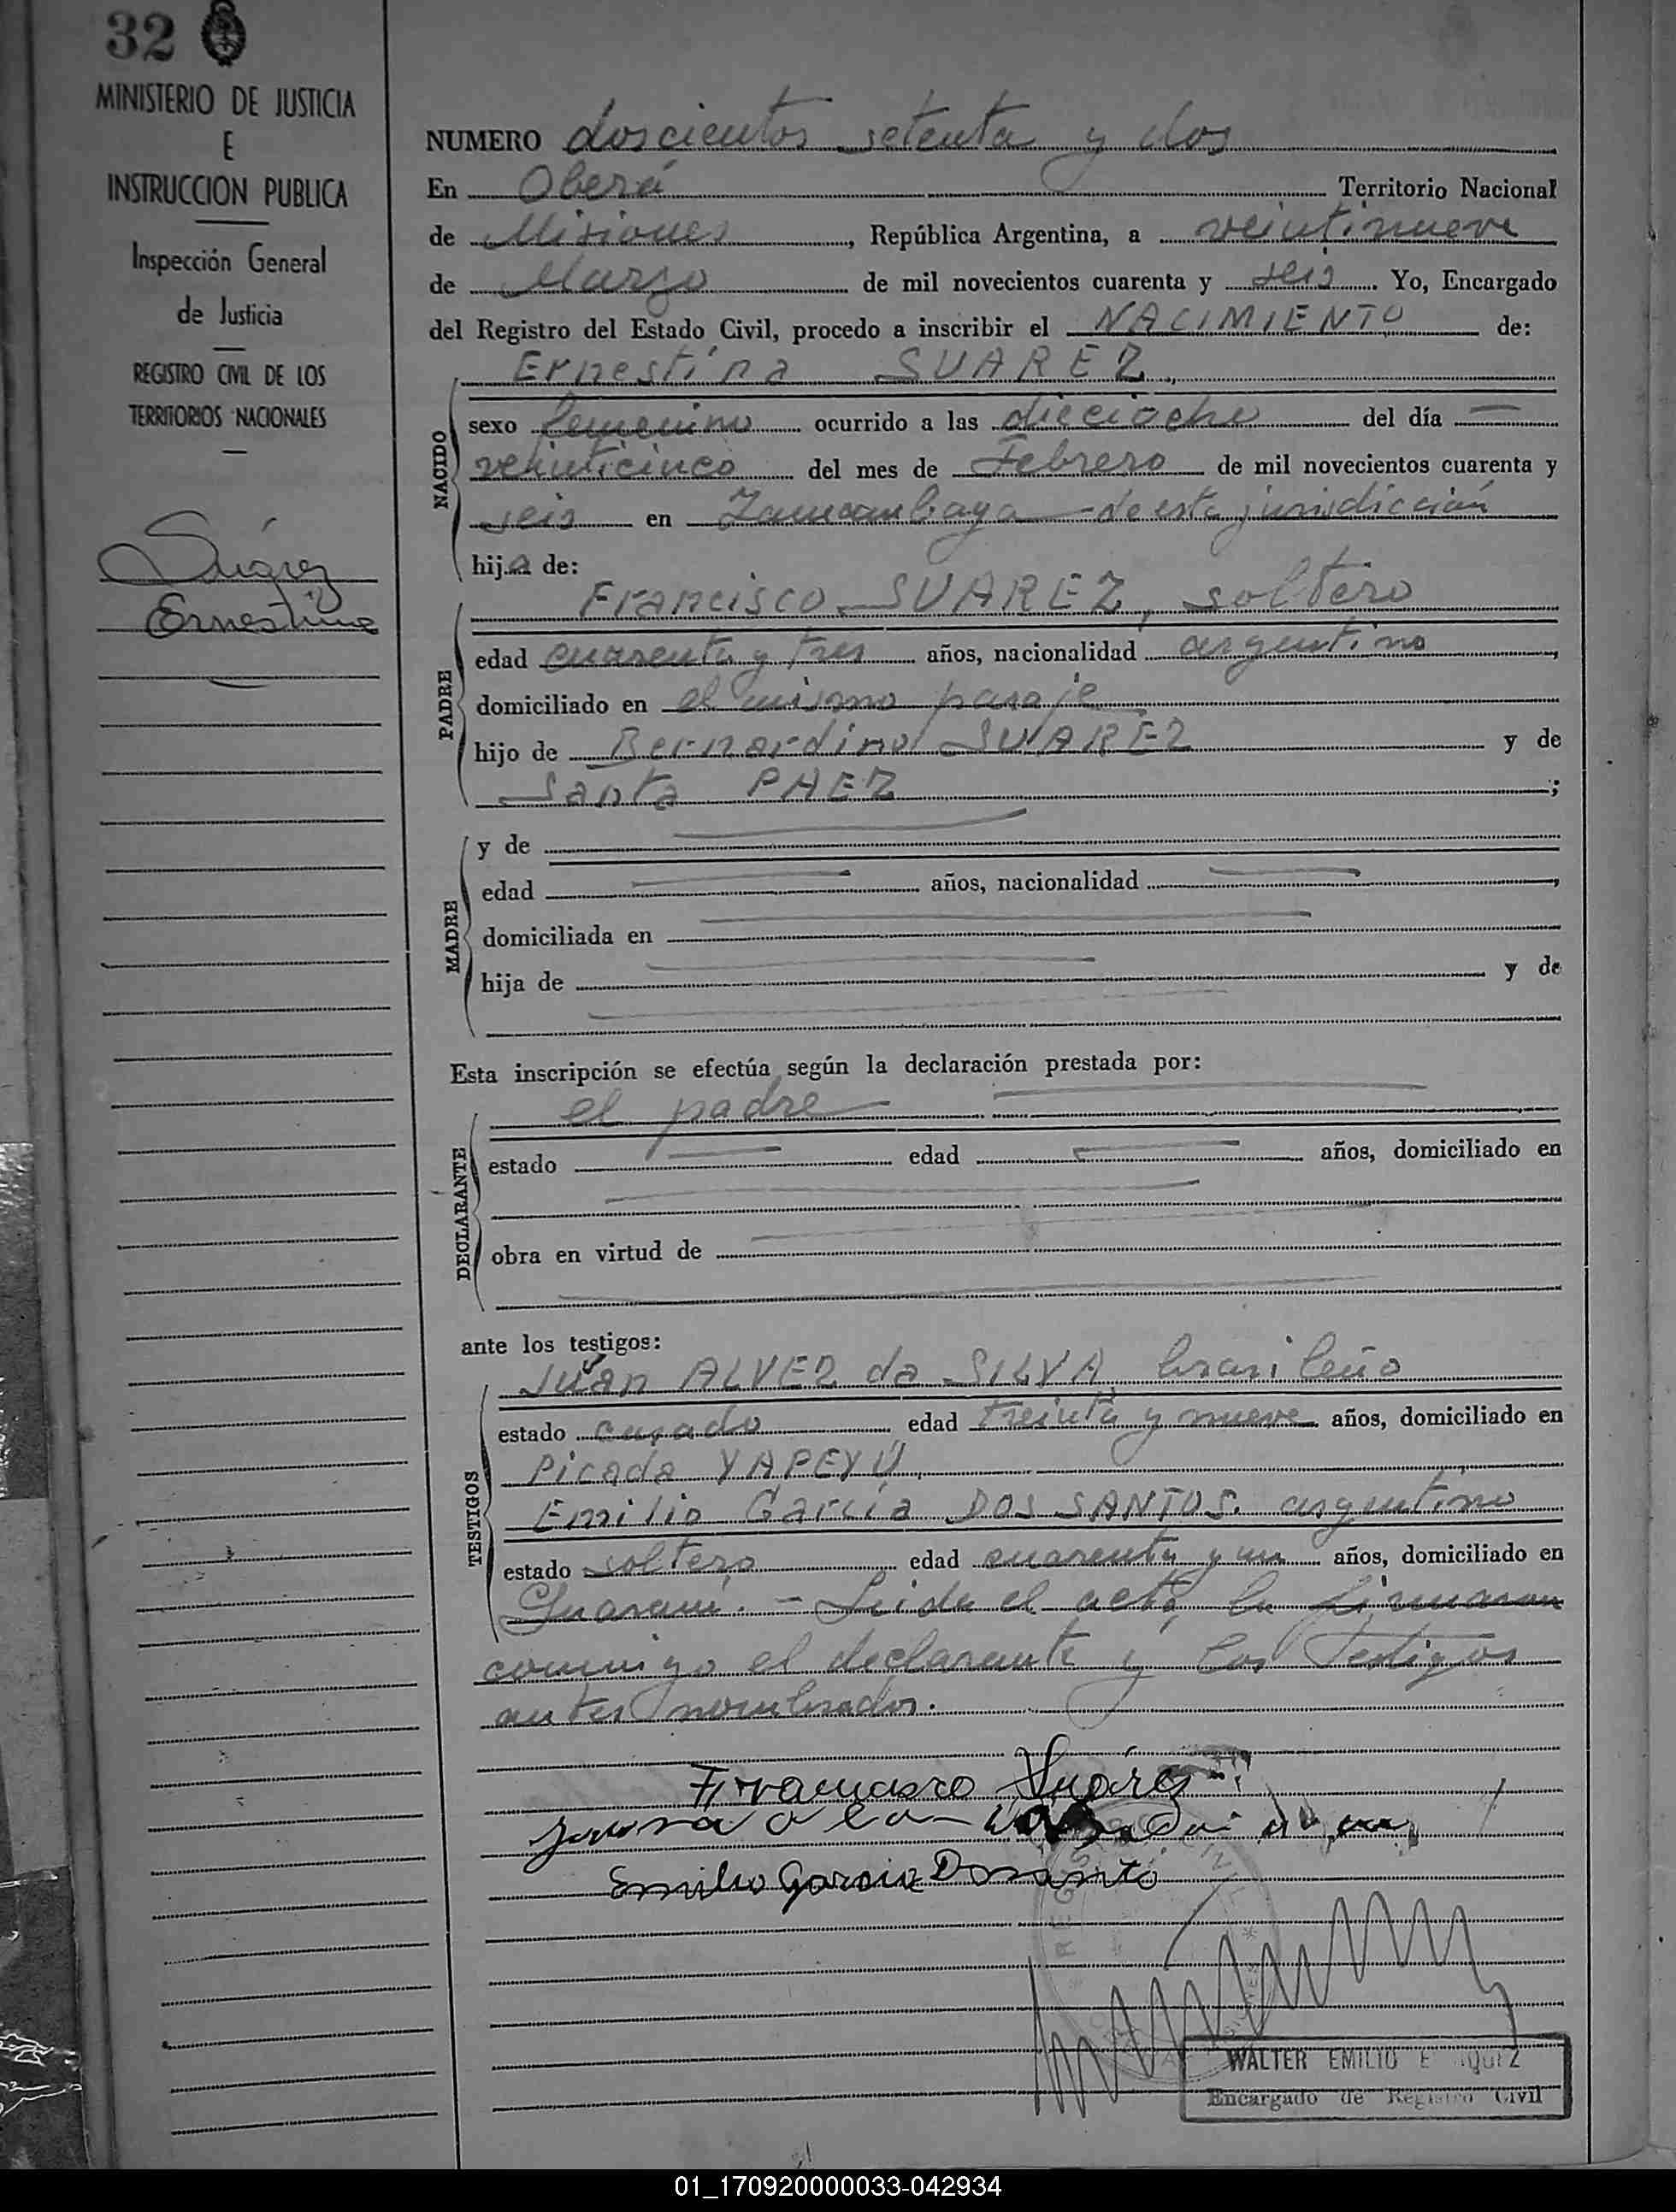 32
MINISTERIO DE JUSTICIA
E
INSTRUCCION PUBLICA
Inspección General
de Justicia
REGISTRO CIVIL DE LOS
TERRITORIOS NACIONALES
Suárez
Ernestina
NUMERO doscientos setenta y dos
En Oberá Territorio Nacional
de Misiones, República Argentina, a veintinueve
de Marzo de mil novecientos cuarenta y seis. Yo, Encargado
del Registro del Estado Civil, procedo a inscribir el NACIMIENTO de:
Ernestina SUAREZ
NACIDO
sexo femenino ocurrido a las dieciocho del día
veinticinco del mes de Febrero de mil novecientos cuarenta y
seis en de esta jurisdicción
hija de:
Francisco SUAREZ, soltero
PADRE
edad cuarenta y tres años, nacionalidad argentino
domiciliado en el mismo paraje
hijo de Bernardino SUAREZ y de
Santa PAEZ ;
MADRE
y de
edad años, nacionalidad
domiciliada en
hija de y de
Esta inscripción se efectúa según la declaración prestada por:
el padre
DECLARANTE
estado edad años, domiciliado en
obra en virtud de
ante los testigos:
Juan ALVEZ da SILVA brasileño
TESTIGOS
estado casado edad treinta y nueve años, domiciliado en
Picada YAPEYÚ
Emilio García DOS SANTOS. argentino
estado soltero edad cuarenta y un años, domiciliado en
Guaraní. - Leida el acta, la firmaron
conmigo el declarante y los testigos
antes nombrados.
Francisco Suárez
Emilio Garcia Dosanto
WALTER EMILIO
Encargado de Registro Civil
01_170920000033-042934